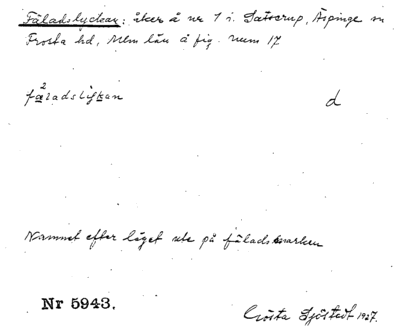 Fäladslyckan: åker å nr 1 i Sätserup, Äspinge sn
Frosta hd, Mlm län å fig. num 17
d
Namnet efter läget ute på fäladsmarken
Nr 5943.
Gösta Sjöstedt 1927.